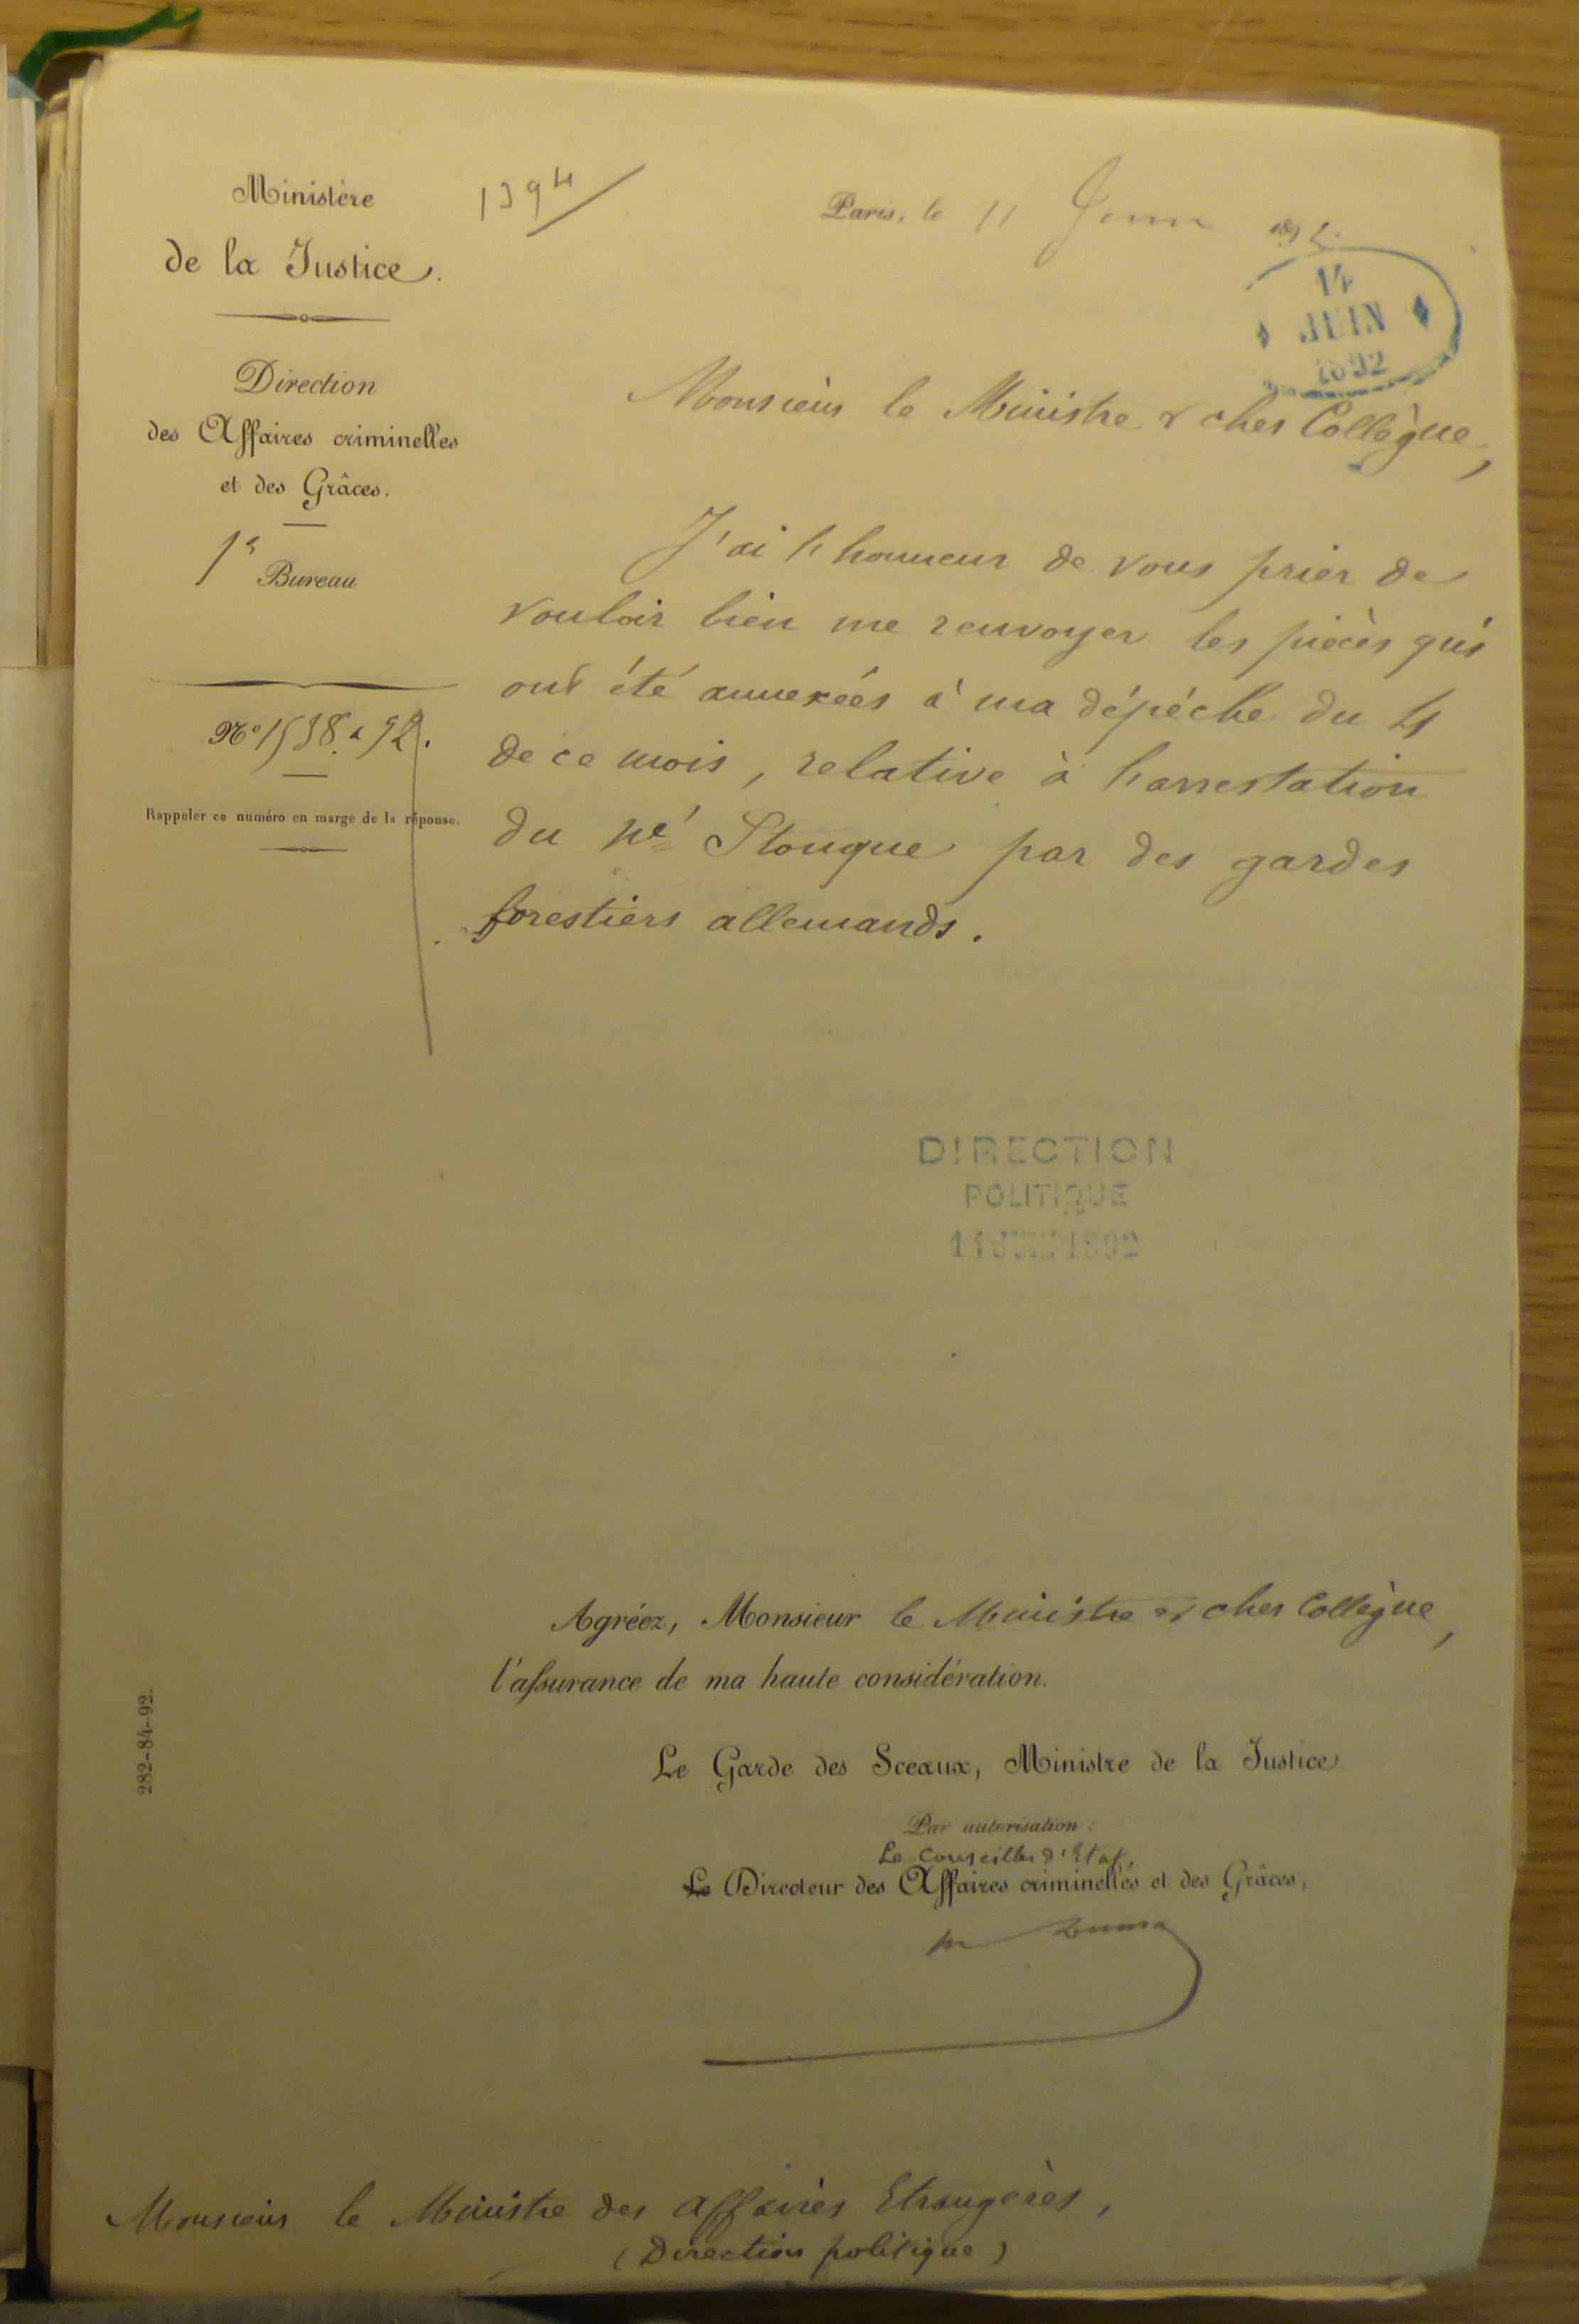 Ministère
de la Justice.
Direction
des Affaires criminelles
et des Grâces.
1er Bureau
N° 1538. a 92.
Rappeler ce numéro en marge de la réponse.
1394
Paris, le 11 Juin 1892.
14
JUIN
1892
Monsieur le Ministre & cher Collègue,
J'ai l'honneur de vous prier de
vouloir bien me renvoyer les pièces qui
ont été annexées à ma dépêche du 4
de ce mois, relative à l'arrestation
du né Stouque par des gardes
forestiers allemands.
DIRECTION
POLITIQUE
14 JUIN 1892
Agréez, Monsieur le Ministre & cher Collègue,
l'assurance de ma haute considération.
Le Garde des Sceaux, Ministre de la Justice
Par autorisation :
Le Conseiller d'Etat,
Le Directeur des Affaires criminelles et des Grâces,
282-84-92.
Monsieur le Ministre des Affaires Etrangères,
(Direction politique)